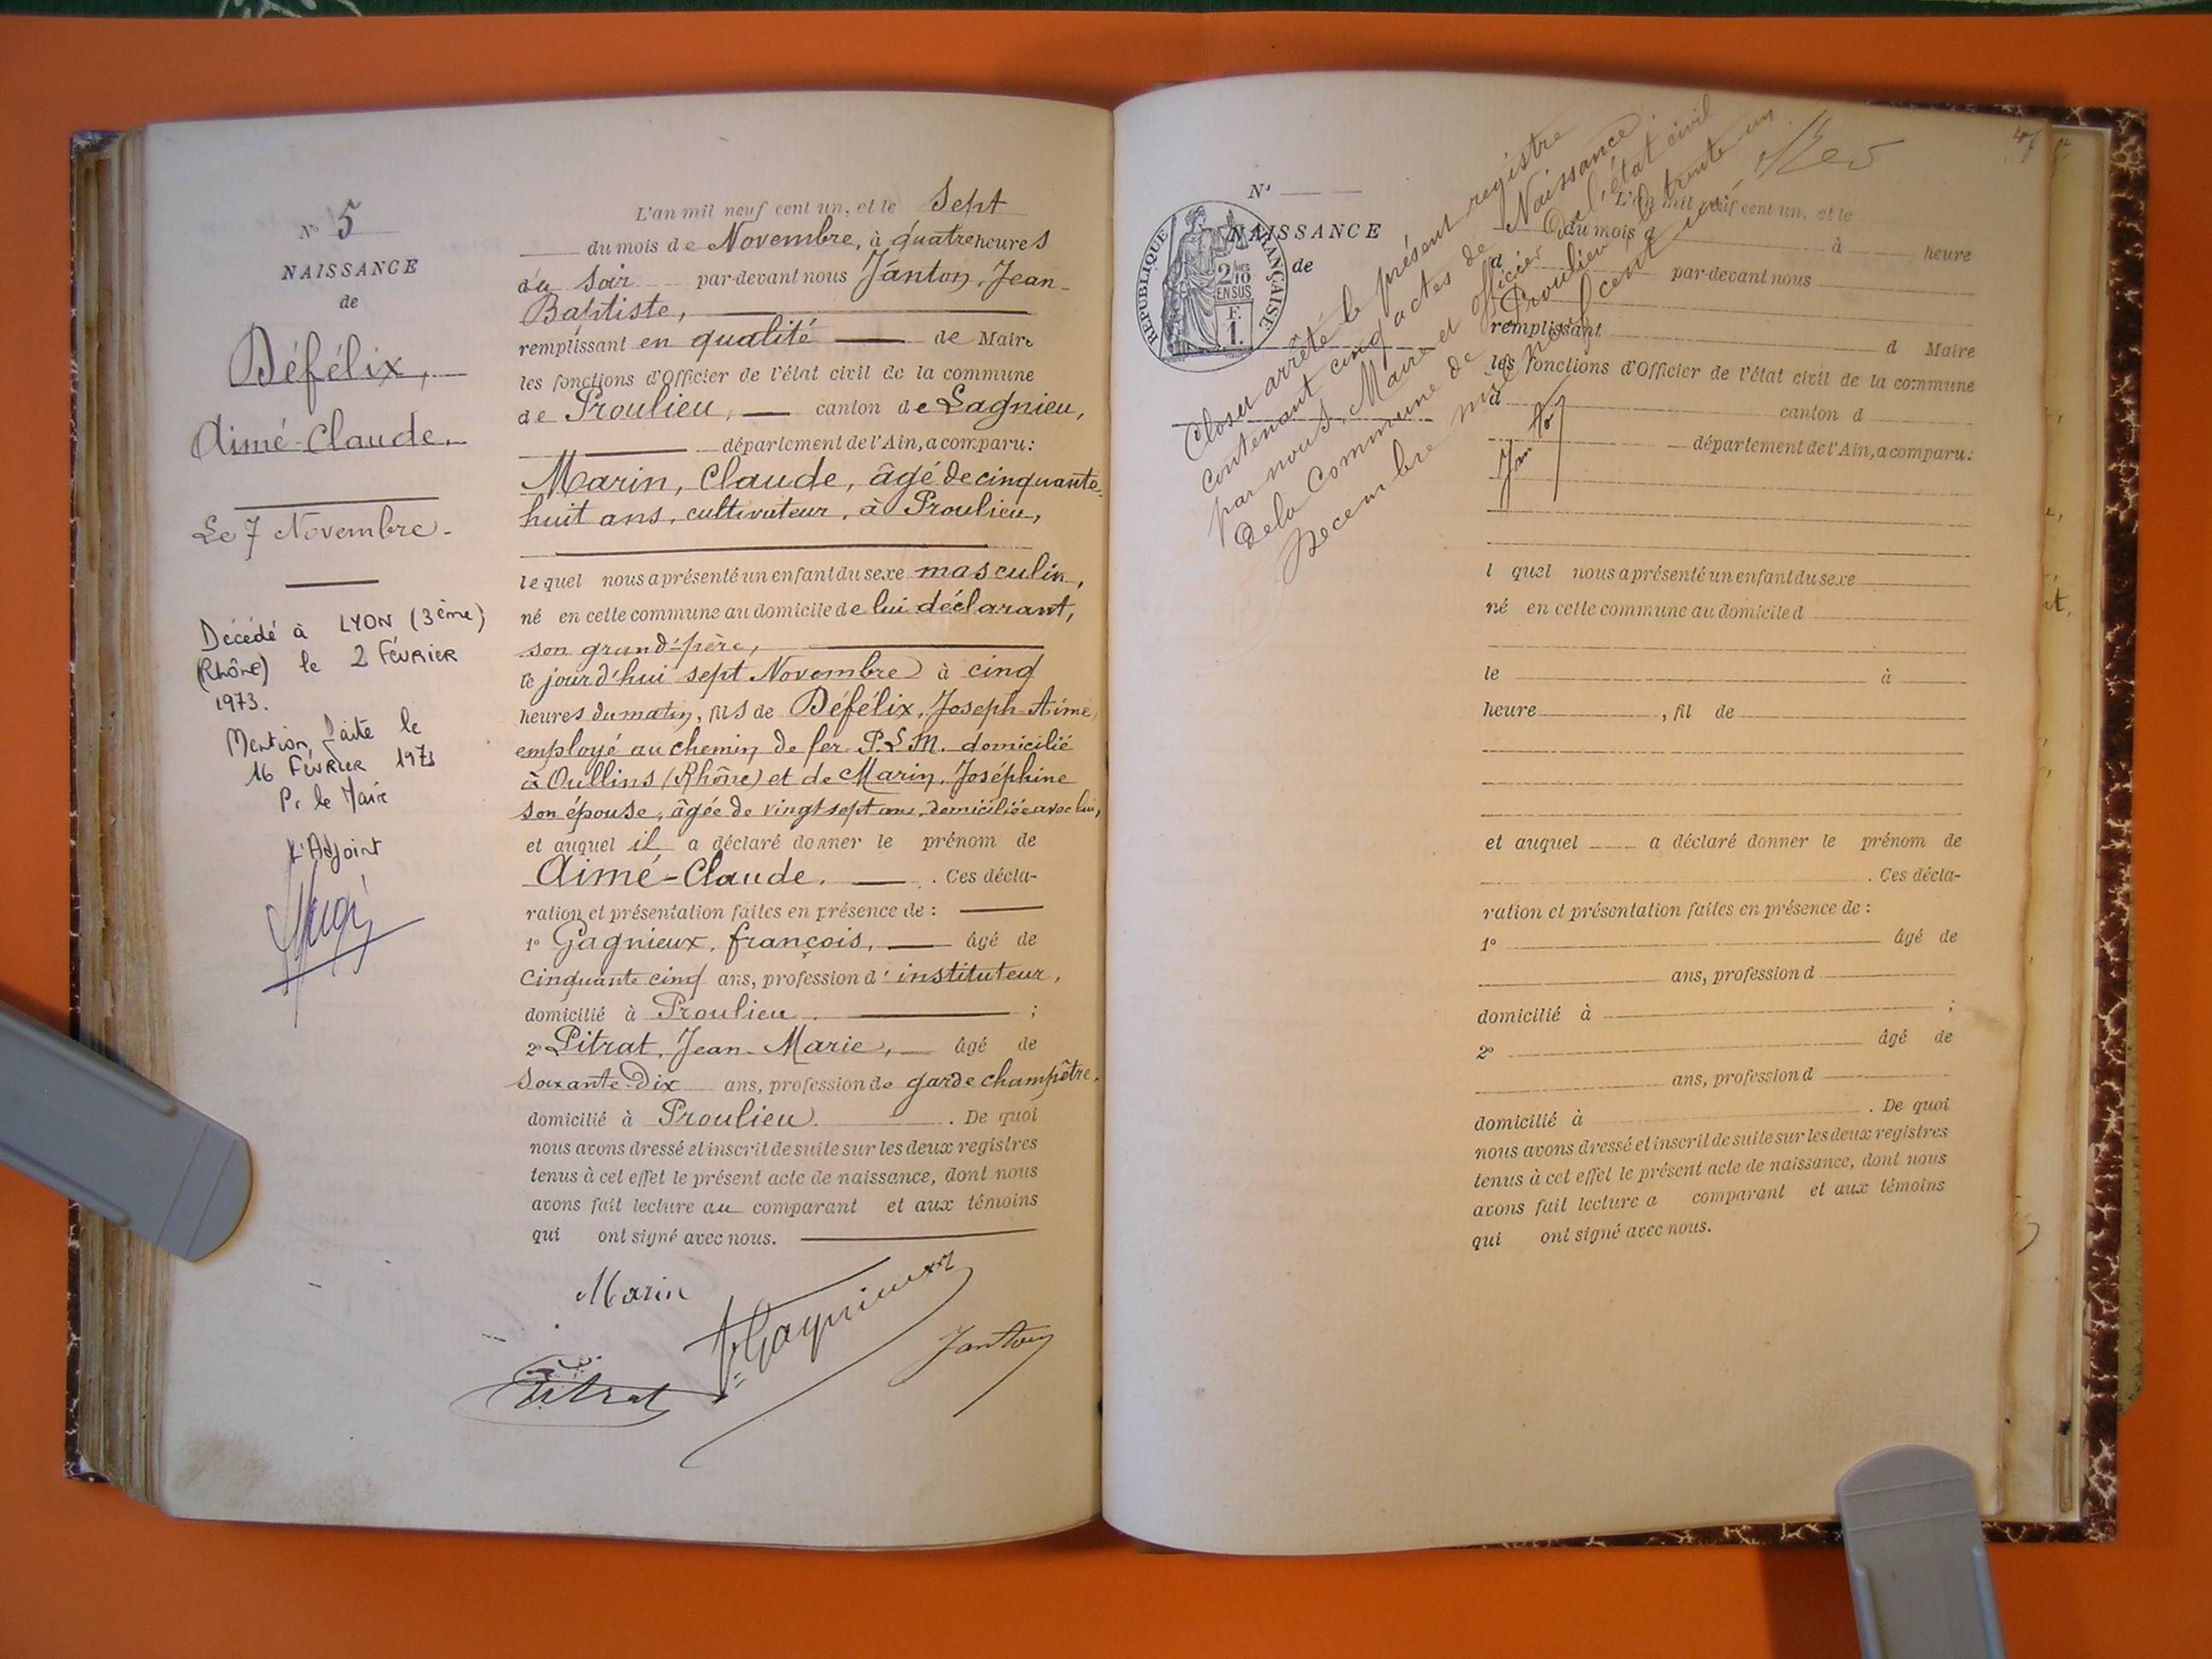 N° 5
NAISSANCE
de
Défélix,
Aimé-Claude.
Le 7 Novembre.
Décédé à LYON (3ème)
(Rhône) le 2 FévRIER
1973.
Mention faite le
16 FévRIER 1973
Pr le Maire
L'Adjoint
L'an mil neuf cent un, et le Sept
du mois de Novembre, à quatre heures
du Soir par-devant nous Janton, Jean-
Baptiste,
remplissant en qualité de Maire
les fonctions d'Officier de l'état civil de la commune
de Proulieu, canton de Lagnieu,
département de l'Ain, a comparu:
Marin, Claude, âgé de cinquante-
huit ans, cultivateur, à Proulieu,
lequel nous a présenté un enfant du sexe masculin,
né en cette commune au domicile de lui déclarant,
son grand-père,
le jourd'hui sept Novembre à cinq
heures du matin, fils de Défélix, Joseph-Aimé,
employé au chemin de fer P.L.M. domicilié
à Oullins (Rhône) et de Marin, Joséphine
son épouse, âgée de vingt sept ans, domiciliée avec lui,
et auquel il a déclaré donner le prénom de
Aimé-Claude. . Ces décla-
ration et présentation faites en présence de :
1° Gagnieux, françois, âgé de
Cinquante cinq ans, profession d'instituteur,
domicilié à Proulieu. ;
2° Pitrat, Jean-Marie, âgé de
Soixante-Dix ans, profession de garde champêtre,
domicilié à Proulieu. . De quoi
nous avons dressé et inscrit de suite sur les deux registres
tenus à cet effet le présent acte de naissance, dont nous
avons fait lecture au comparant et aux témoins
qui ont signé avec nous.
Marin
Gagnieux
Janton
Pitrat
Clos et arrêté le présent registre
contenant cinq actes de Naissance.
par nous, Maire et officier de l'état civil
de la Commune de Proulieu le trente un
Décembre mil neuf cent un.
Janton
N°
NAISSANCE
de
RÉPUBLIQUE FRANÇAISE
2/10
EN SUS
F.
1.
L'an mil neuf cent un, et le
du mois d à heure
d par-devant nous
remplissant d Maire
les fonctions d'Officier de l'état civil de la commune
d canton d
département de l'Ain, a comparu:
l quel nous a présenté un enfant du sexe
né en cette commune au domicile d
le à
heure , fil de
et auquel a déclaré donner le prénom de
. Ces décla-
ration et présentation faites en présence de :
1° âgé de
ans, profession d
domicilié à ;
2° âgé de
ans, profession d
domicilié à . De quoi
nous avons dressé et inscrit de suite sur les deux registres
tenus à cet effet le présent acte de naissance, dont nous
avons fait lecture a comparant et aux témoins
qui ont signé avec nous.